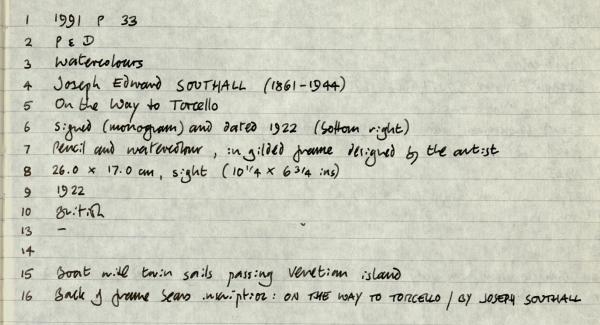 1 1991 P 33
2 P & D
3 watercolours
4 Joseph Edward SOUTHALL (1861-1944)
5 On the Way to Torcello
6 signed (monogram) and dated 1922 (bottom right)
7 Pencil and watercolour, in gilded frame designed by the artist
8 26.0 × 17.0 cm, sight (10 1/4 × 6 3/4 ins)
9 1922
10 British
13 -
14
15 Boat with twin sails passing Venetian island
16 Back of frame bears inscription: ON THE WAY TO TORCELLO / BY JOSEPH SOUTHALL